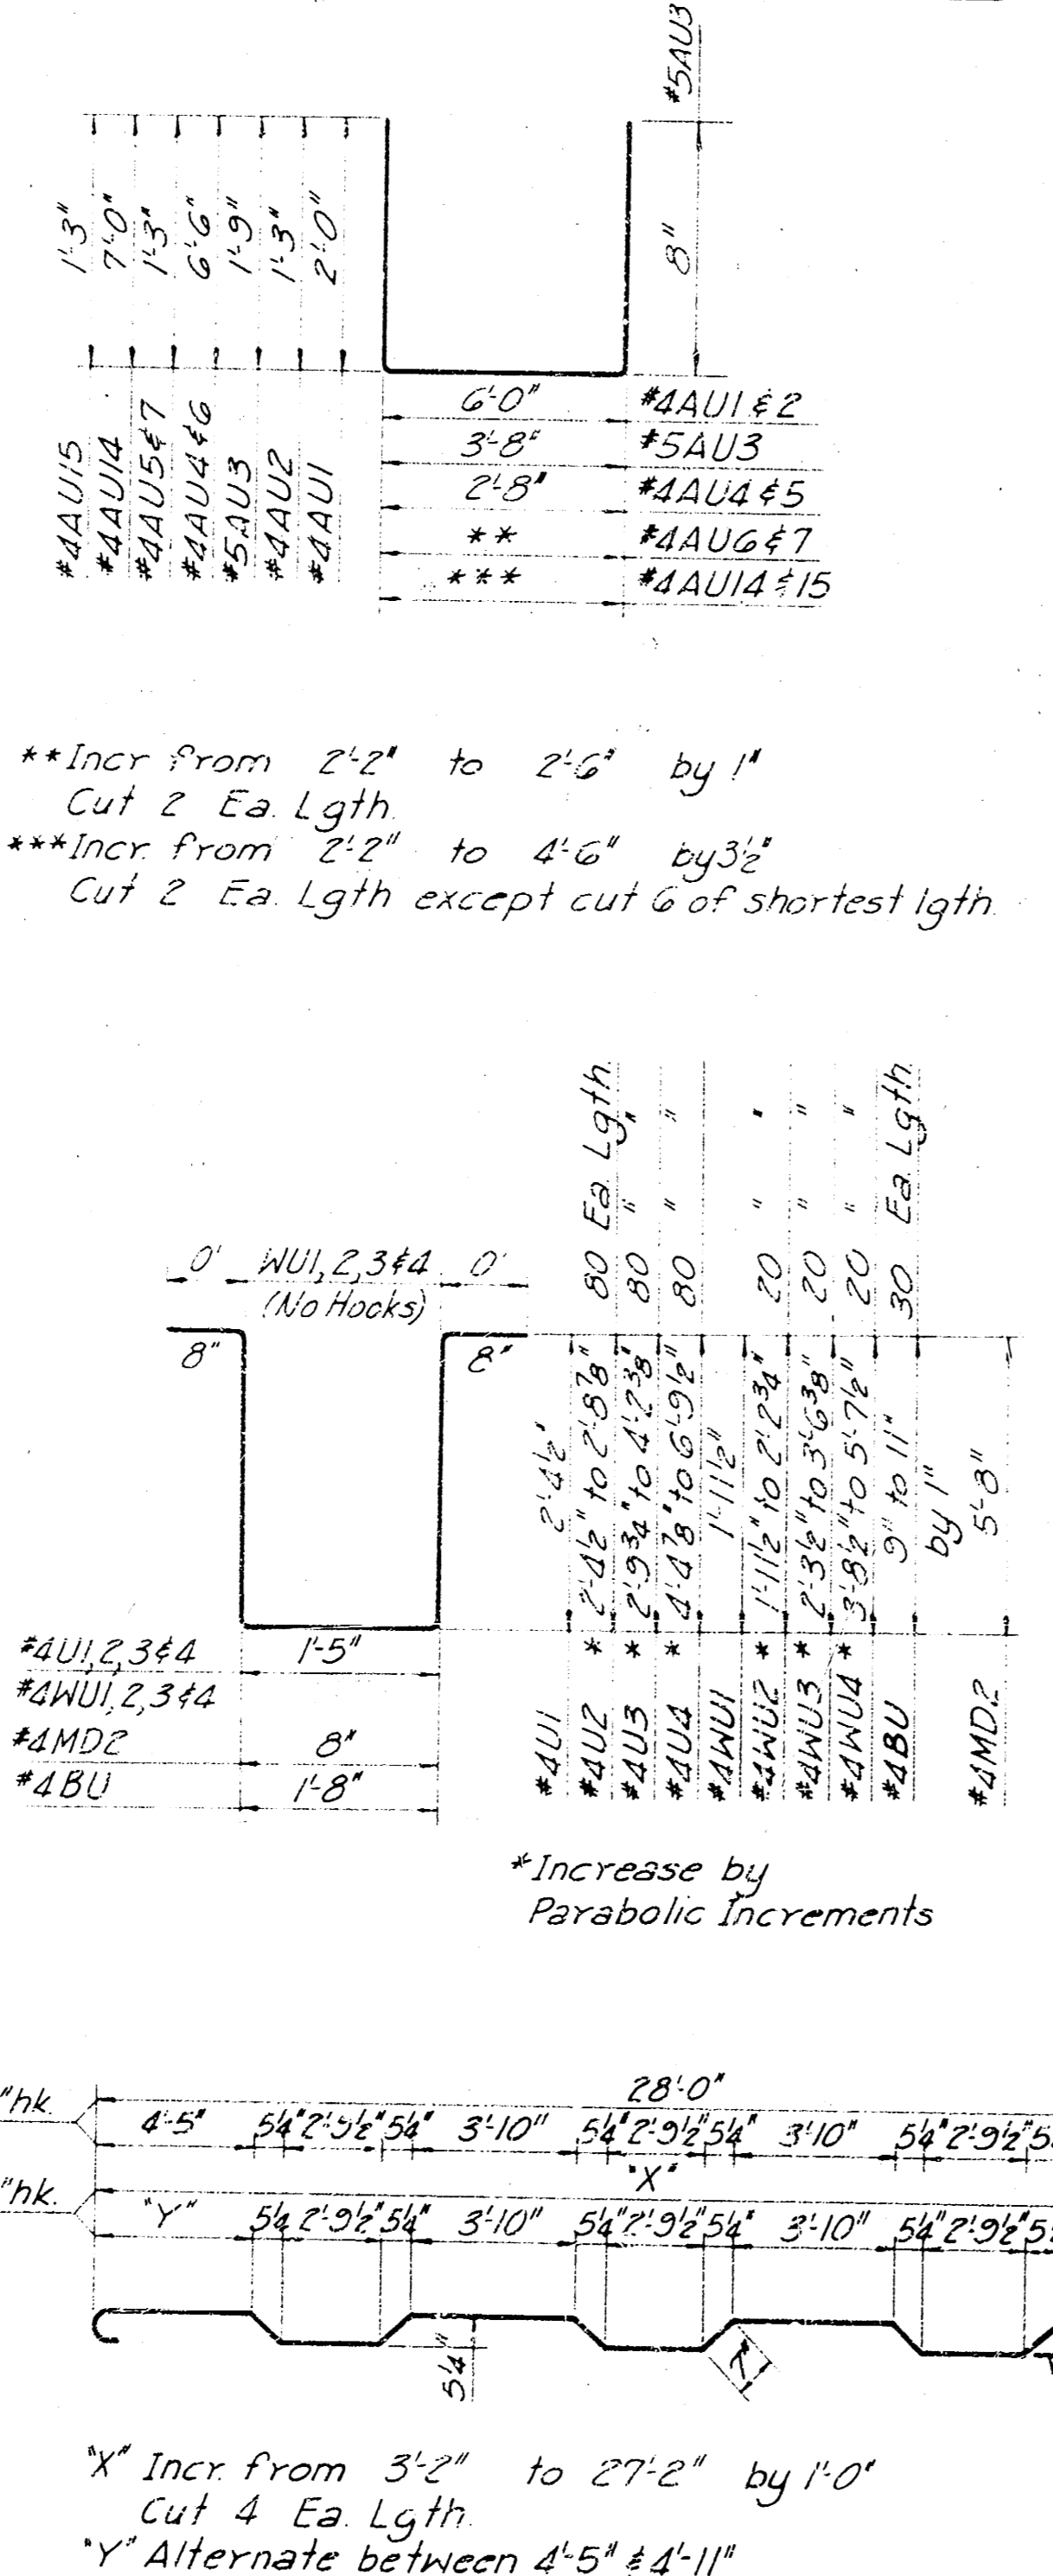 #5AU3
1'-3"
7'-0"
1'-3"
6'-6"
1'-9"
1'-3"
2'-0"
8"
#4AU15
#4AU14
#4AU5&7
#4AU4&6
#5AU3
#4AU2
#4AU1
6'-0" #4AU1&2
3'-8" #5AU3
2'-8" #4AU4&5
** #4AU6&7
*** #4AU14&15
**Incr from 2'-2" to 2'-6" by 1"
Cut 2 Ea. Lgth.
***Incr. from 2'-2" to 4'-6" by 3½"
Cut 2 Ea. Lgth except cut 6 of shortest lgth.
0' WU1,2,3&4 0'
(No Hooks)
8" 8"
80 Ea. Lgth.
80 " "
80 " "
20 " "
20 " "
20 " "
30 Ea. Lgth.
2'-4½"
2'-4½" to 2'-8⅞"
2'-9¾" to 4'-2⅜"
4'-4⅞" to 6'-9½"
1'-11½"
1'-11½" to 2'-2¾"
2'-3½" to 3'-6⅜"
3'-8½" to 5'-7½"
9" to 11"
by 1"
5'-8"
#4U1,2,3&4 1'-5"
#4WU1,2,3&4
#4MD2 8"
#4BU 1'-8"
#4U1
#4U2 *
#4U3 *
#4U4 *
#4WU1
#4WU2 *
#4WU3 *
#4WU4 *
#4BU
#4MD2
*Increase by
Parabolic Increments
"hk. 28'-0"
4'-5" 5¼" 2'-9½" 5¼" 3'-10" 5¼" 2'-9½" 5¼" 3'-10" 5¼" 2'-9½"
"hk. "X"
"Y" 5¼ 2'-9½" 5¼" 3'-10" 5¼" 2'-9½" 5¼" 3'-10" 5¼" 2'-9½"
5¼"
"X" Incr. from 3'-2" to 27'-2" by 1'-0"
Cut 4 Ea. Lgth.
"Y" Alternate between 4'-5" & 4'-11"